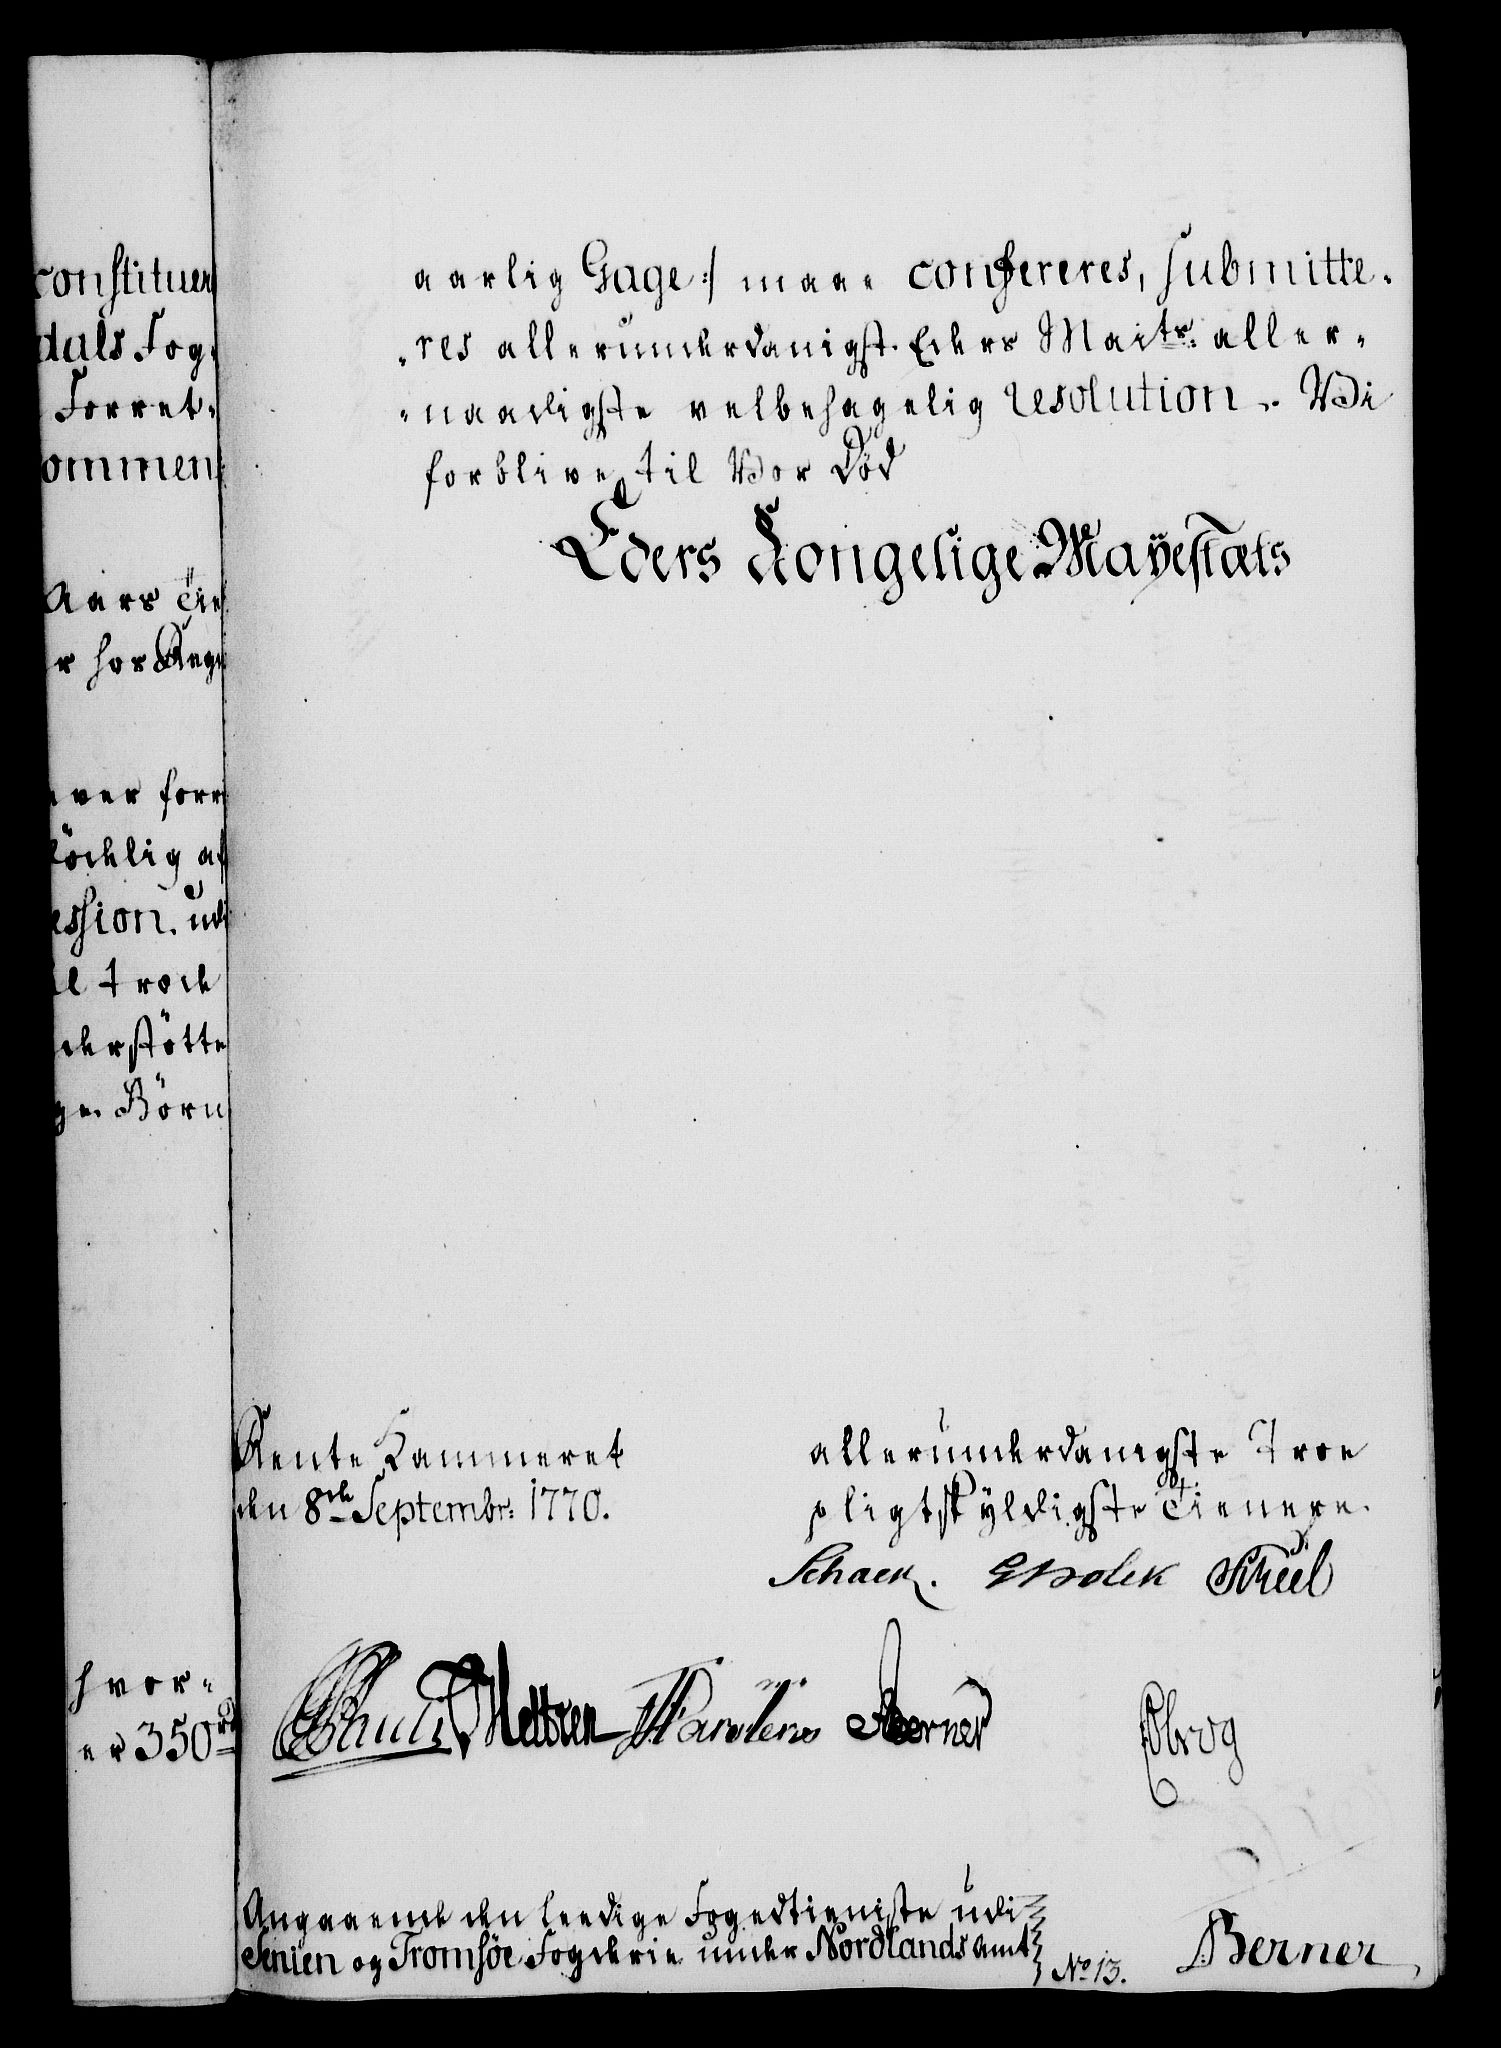 constituer
dals Fog-
Forret-
ommen
Aars Tie
r hos Reg
ever forr
löchlig af
ession. udi
il trode
derstötte
ge. Börn
hvor-
er 350 rd
aarlig Gage :/ maae confereres, submitte-
-res allerunderdanigst Eders Maits: aller-
-naadigste velbehagelig resolution. Vi
forblive til Vor Död
Eders Kongelige Mayestæts
Rente Kammeret
den 8de Septembr: 1770.
allerunderdanigste Troe
pligtskyldigste Tienere.
Schack. Holck Scheel
Berner
Angaaende den leedige Fogedtieniste udi
Senien og Tromsöe Fogderie under Nordlands amt
No 13.
Berner